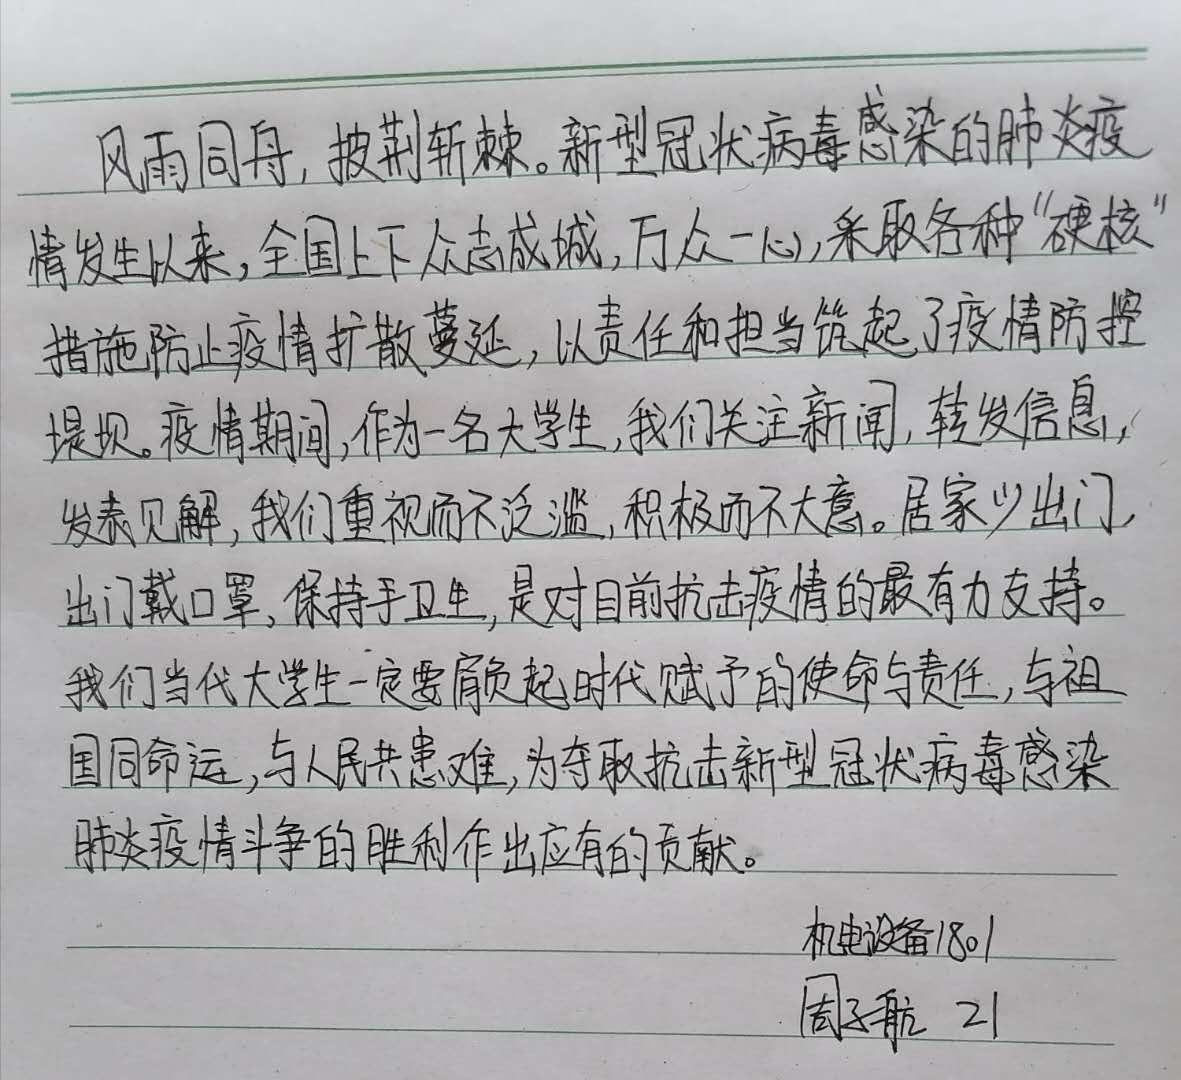 风雨同舟，披荆斩棘。新型冠状病毒感染的肺炎疫
情发生以来，全国上下众志成城，万众一心，采取各种“硬核”
措施防止疫情扩散蔓延，以责任和担当筑起了疫情防控
堤坝。疫情期间，作为一名大学生，我们关注新闻，转发信息，
发表见解，我们重视而不泛滥，积极而不大意。居家少出门，
出门戴口罩，保持手卫生，是对目前抗击疫情的最有力支持。
我们当代大学生一定要肩负起时代赋予的使命与责任，与祖
国同命运，与人民共患难，为夺取抗击新型冠状病毒感染
肺炎疫情斗争的胜利作出应有的贡献。
机电设备1801
周子航 21